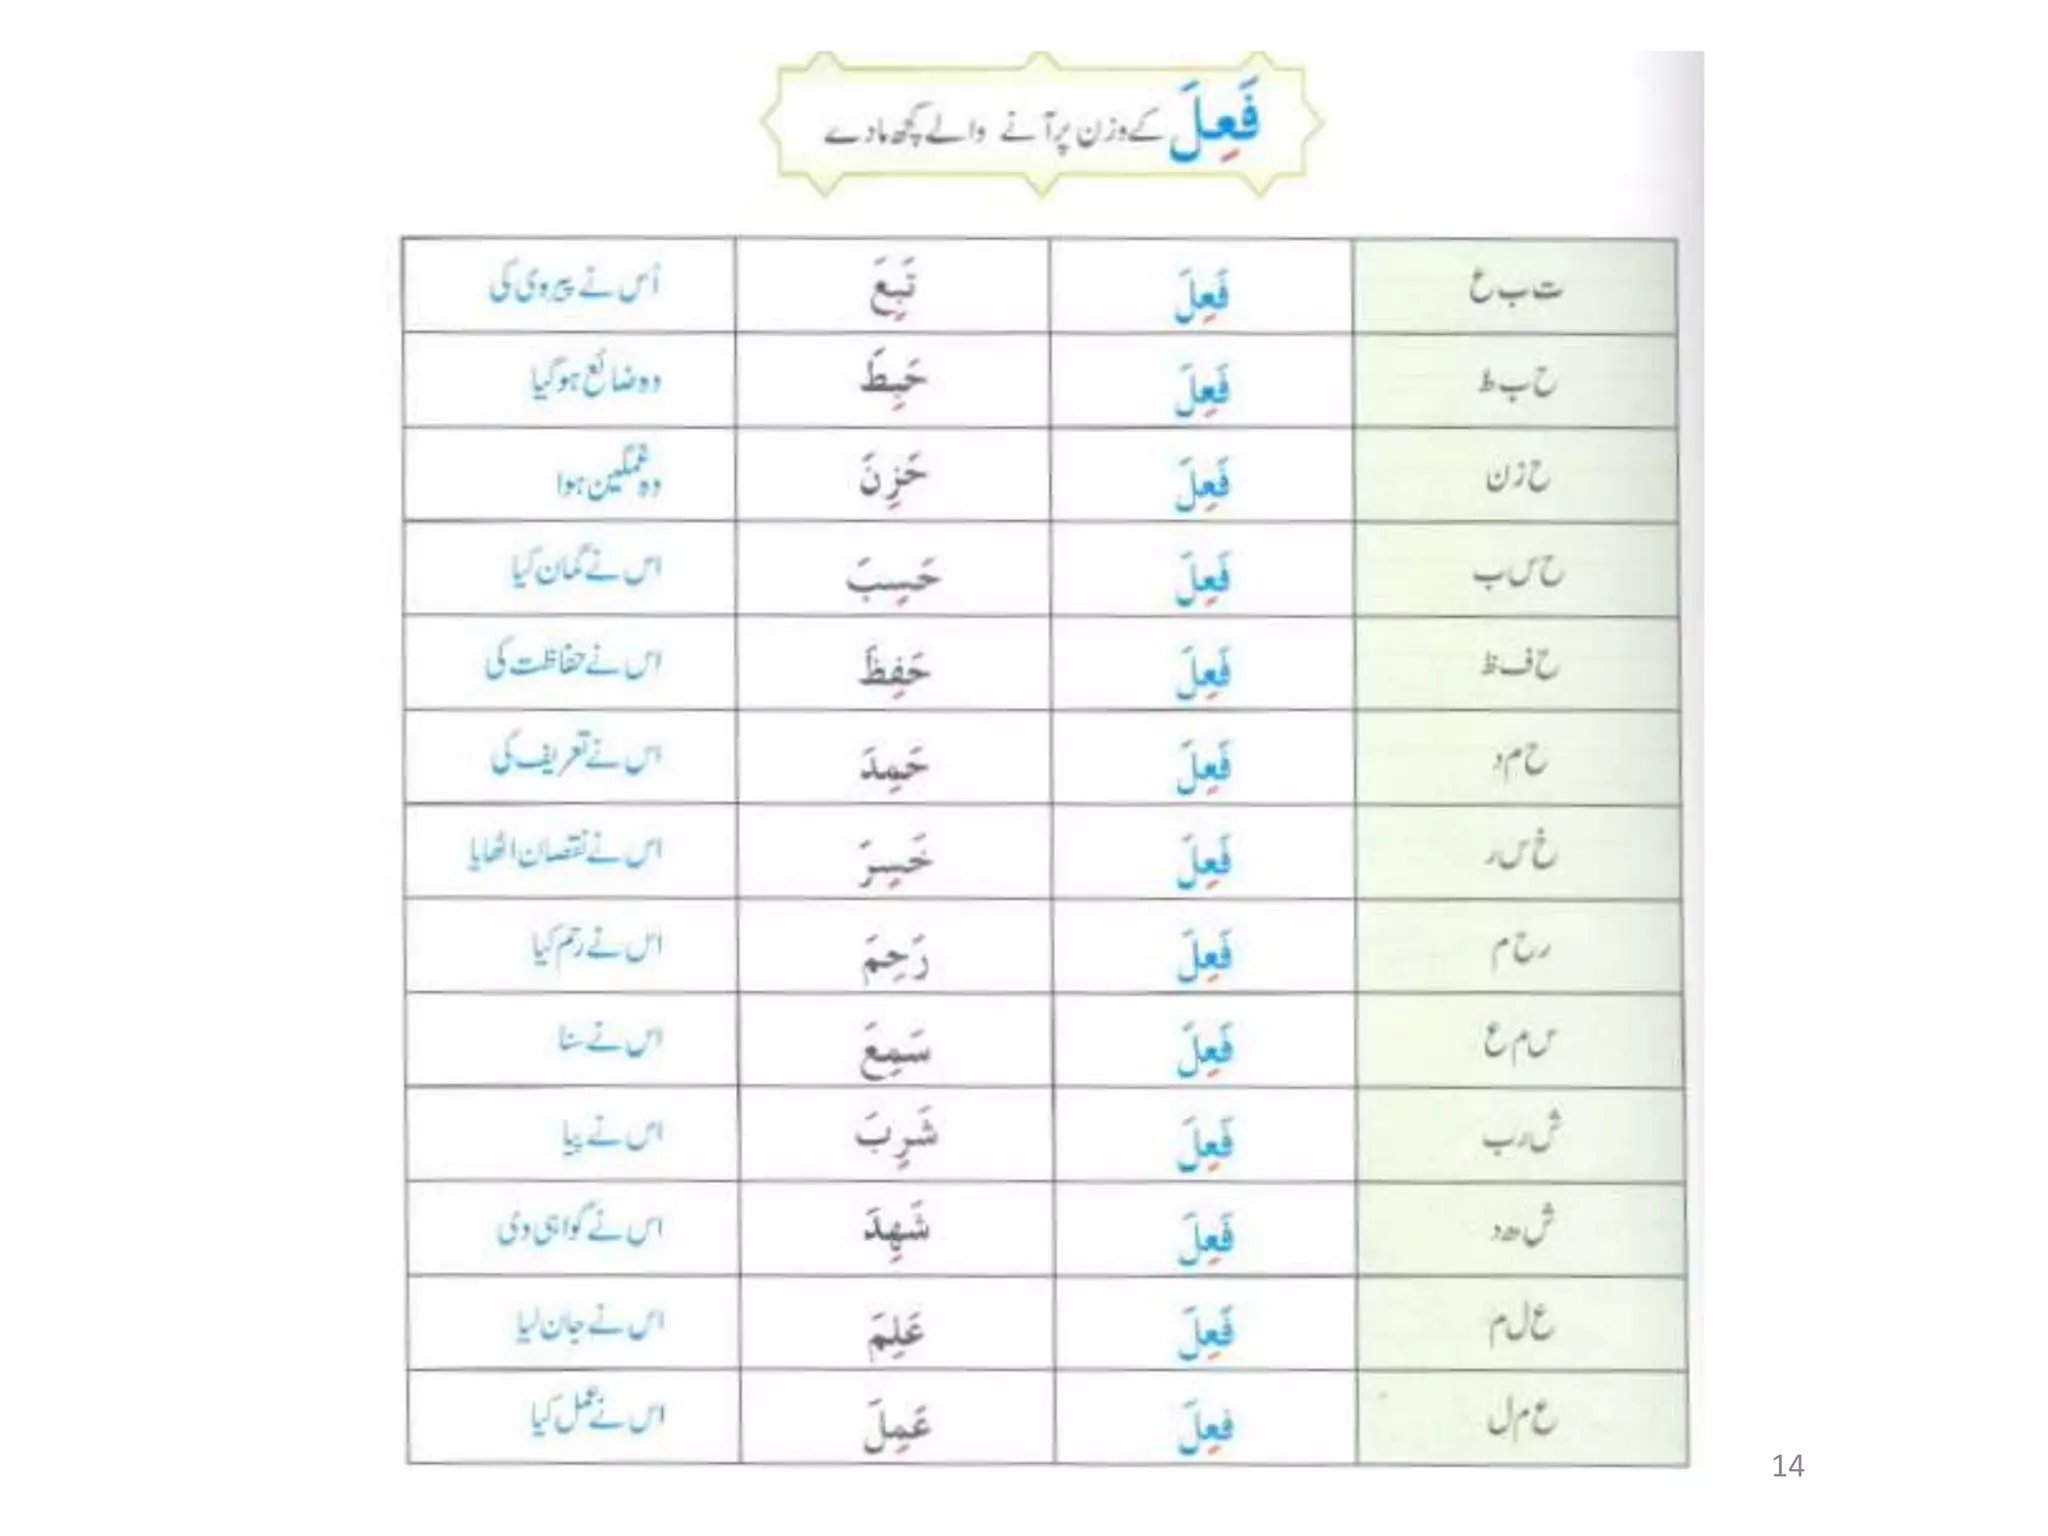 فَعِلَ کے وزن پر آنے والے کچھ مادے
ت ب ع فَعِلَ تَبِعَ اُس نے پیروی کی
ح ب ط فَعِلَ حَبِطَ وہ ضائع ہو گیا
ح ز ن فَعِلَ حَزِنَ وہ غمگین ہوا
ح س ب فَعِلَ حَسِبَ اس نے گمان کیا
ح ف ظ فَعِلَ حَفِظَ اس نے حفاظت کی
ح م د فَعِلَ حَمِدَ اس نے تعریف کی
خ س ر فَعِلَ خَسِرَ اس نے نقصان اٹھایا
ر ح م فَعِلَ رَحِمَ اس نے رحم کیا
س م ع فَعِلَ سَمِعَ اس نے سنا
ش ر ب فَعِلَ شَرِبَ اس نے پیا
ش ھ د فَعِلَ شَهِدَ اس نے گواہی دی
ع ل م فَعِلَ عَلِمَ اس نے جان لیا
ع م ل فَعِلَ عَمِلَ اس نے عمل کیا
14